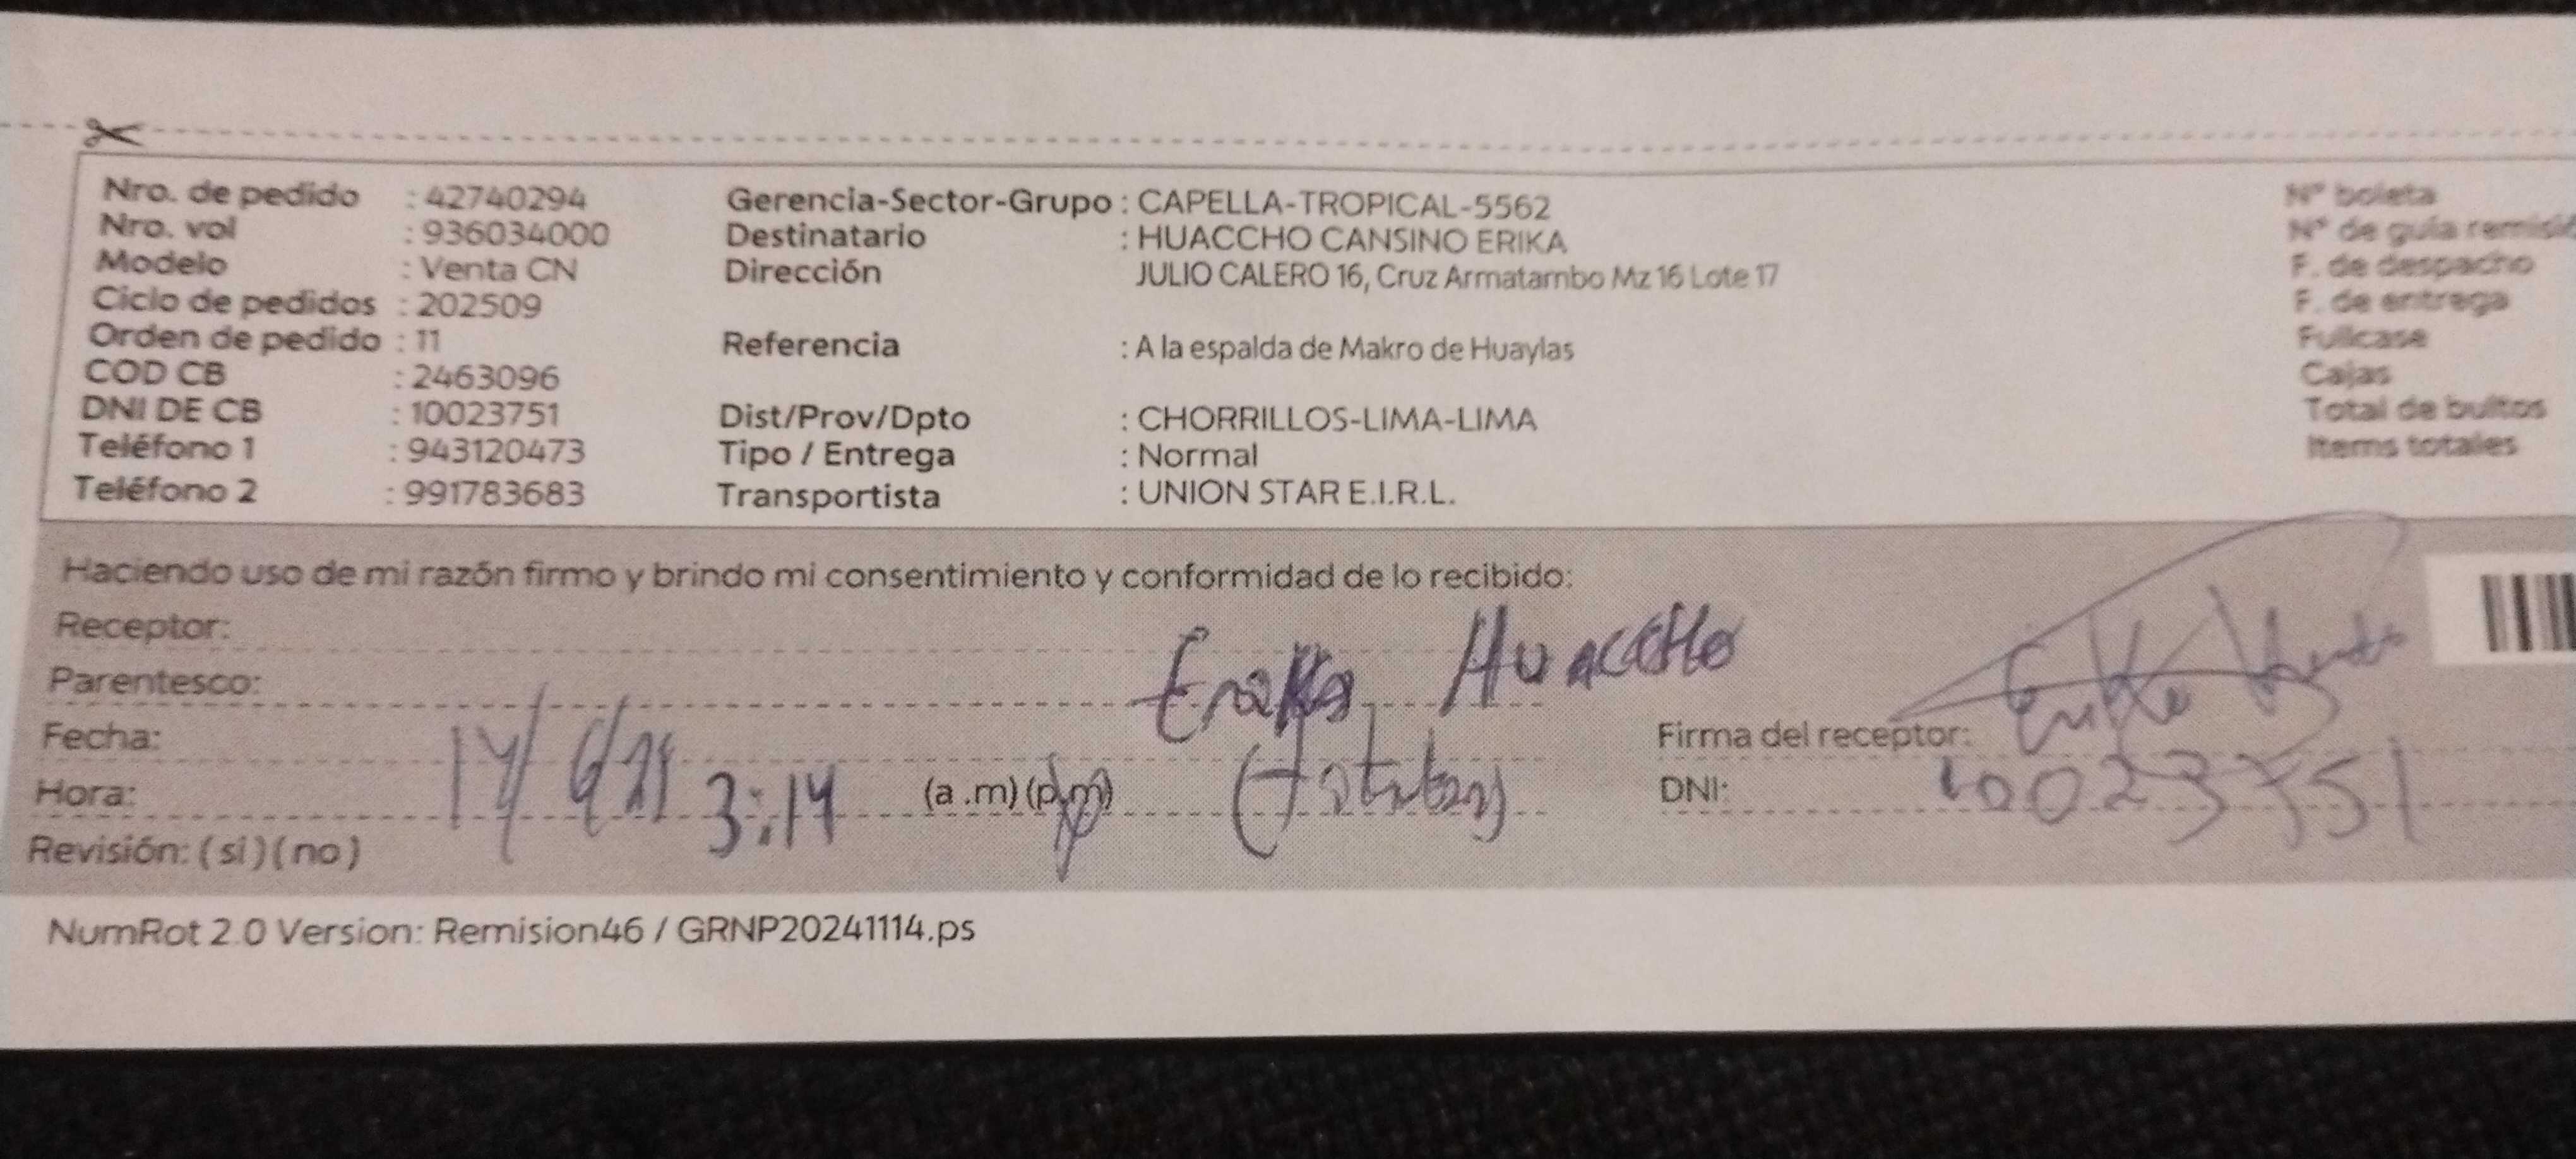 Nro. de pedido : 42740294
Nro. vol : 936034000
Modelo : Venta CN
Ciclo de pedidos : 202509
Orden de pedido : 11
COD CB : 2463096
DNI DE CB : 10023751
Teléfono 1 : 943120473
Teléfono 2 : 991783683
Gerencia-Sector-Grupo : CAPELLA-TROPICAL-5562
Destinatario : HUACCHO CANSINO ERIKA
Dirección JULIO CALERO 16, Cruz Armatambo Mz 16 Lote 17
Referencia : A la espalda de Makro de Huaylas
Dist/Prov/Dpto : CHORRILLOS-LIMA-LIMA
Tipo / Entrega : Normal
Transportista : UNION STAR E.I.R.L.
N° boleta
N° de guía
F. de despacho
F. de entrega
Fullcase
Cajas
Total de bultos
Items totales
Haciendo uso de mi razón firmo y brindo mi consentimiento y conformidad de lo recibido:
Receptor: Erika Huaccho
Parentesco:
Fecha: 14/6/25
Hora: 3:14 (a .m) (p.m)
Revisión: ( si ) ( no )
Firma del receptor:
DNI: 10023751
NumRot 2.0 Version: Remision46 / GRNP20241114.ps